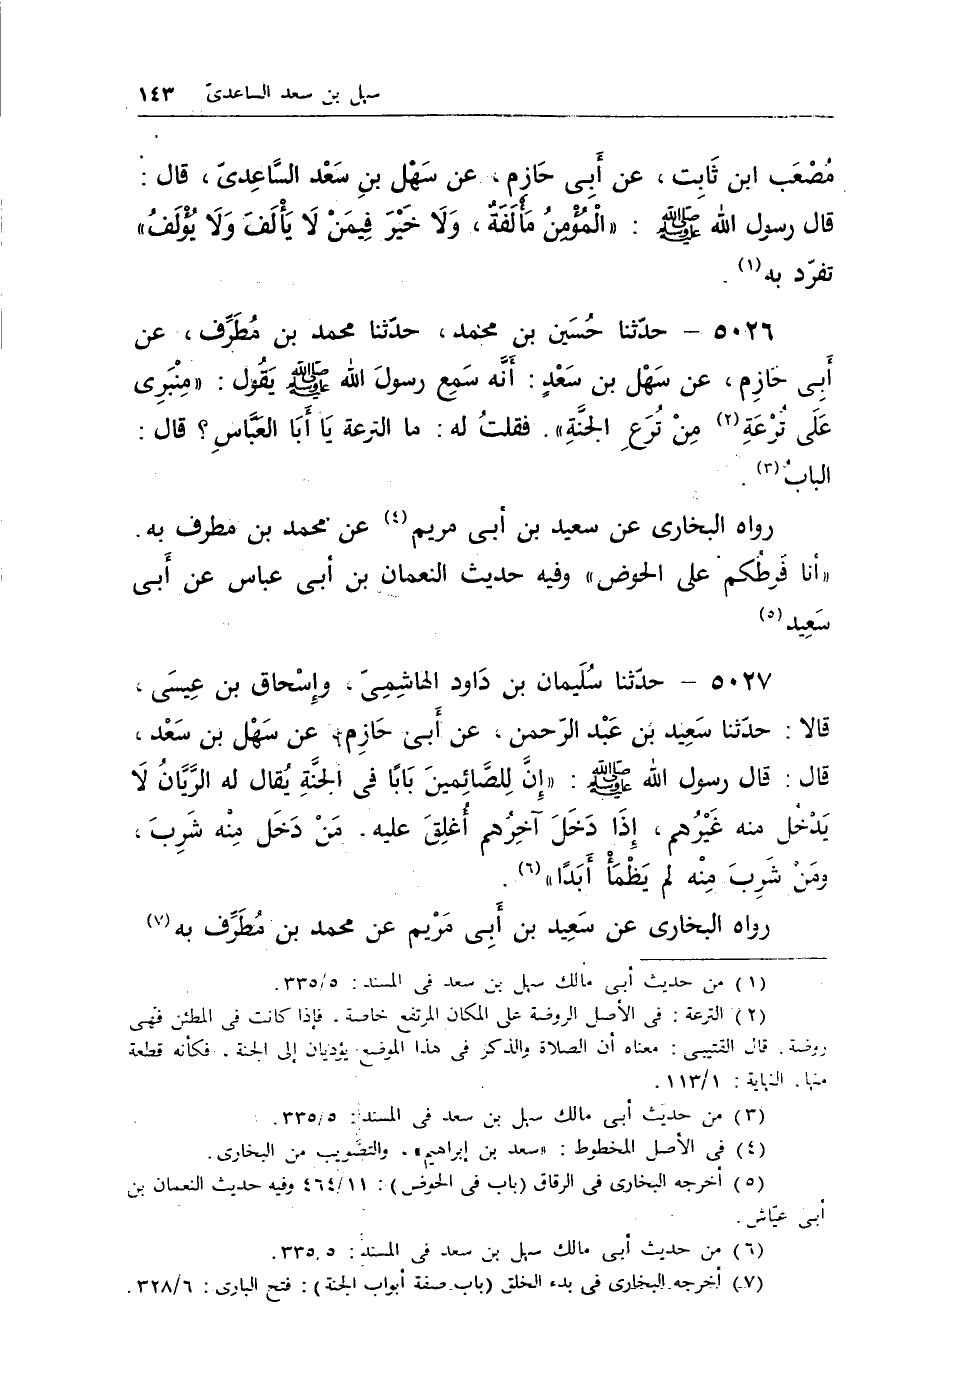 سهل بن سعد الساعدىّ ١٤٣
مُصْعَب ابن ثَابِت ، عن أَبِى حَازِم ، عن سَهْل بنِ سَعْد السَّاعِدىّ ، قال :
قال رسول الله ﷺ : «الْمُؤْمِنُ مَأْلَفَةٌ ، وَلَا خَيْرَ فِيمَنْ لَا يَأْلَفَ وَلَا يُؤْلَفُ»
تفرّد به(١) .
٥٠٢٦ – حدّثنا حُسَين بن محمد ، حدّثنا محمد بن مُطَرِّف ، عن
أَبِى حَازِم ، عن سَهْل بن سَعْدٍ : أَنَّه سَمِع رسولَ الله ﷺ يَقُول : «مِنْبَرِى
عَلَى تُرْعَةِ(٢) مِنْ تُرَعِ الجَنَّةِ» . فقلتُ له : ما الترعة يَا أَبَا العَبَّاسِ؟ قال :
البابُ(٣) .
رواه البخارى عن سعيد بن أبى مريم(٤) عن محمد بن مطرف به .
«أنا فَرطُكم على الحوض» وفيه حديث النعمان بن أبى عباس عن أَبى
سَعِيد(٥)
٥٠٢٧ – حدّثنا سُلَيمان بن دَاود الهَاشِمِىّ ، وإسْحاق بن عِيسَى ،
قالا : حدّثنا سَعِيد بن عَبْد الرّحمن ، عن أَبى حَازِم، عن سَهْل بن سَعْد ،
قال : قال رسول الله ﷺ : «إِنَّ لِلصَّائِمينَ بَابًا فى الجَنَّةِ يُقال له الرَّيَّانُ لَا
يَدْخُل منه غَيْرُهم ، إِذَا دَخَلَ آخِرُهم أُغلِقَ عليه . مَنْ دَخَل مِنْه شَرِبَ ،
ومَنْ شَرِبَ مِنْه لم يَظْمَأْ أَبَدًا»(٦) .
رواه البخارى عن سَعِيد بن أَبِى مَرْيم عن محمد بن مُطَرِّف به(٧)
(١) من حديث أبى مالك سهل بن سعد فى المسند : ٣٣٥/٥ .
(٢) الترعة : فى الأصل الروضة على المكان المرتفع خاصة . فإذا كانت فى المطئن فهى
روضة . قال القتيبى : معناه أن الصلاة والذكر فى هذا الموضع يؤديان إلى الجنة . فكأنه قطعة
منها . النهاية : ١١٣/١ .
(٣) من حديث أبى مالك سهل بن سعد فى المسند : ٣٣٥/٥ .
(٤) فى الأصل المخطوط : «سعد بن إبراهيم» . والتصويب من البخارى .
(٥) أخرجه البخارى فى الرقاق (باب فى الحوض) : ٤٦٤/١١ وفيه حديث النعمان بن
أبى عيّاش .
(٦) من حديث أبى مالك سهل بن سعد فى المسند : ٣٣٥.٥ .
(٧) أخرجه البخارى فى بدء الخلق (باب صفة أبواب الجنة) : فتح البارى : ٣٢٨/٦ .